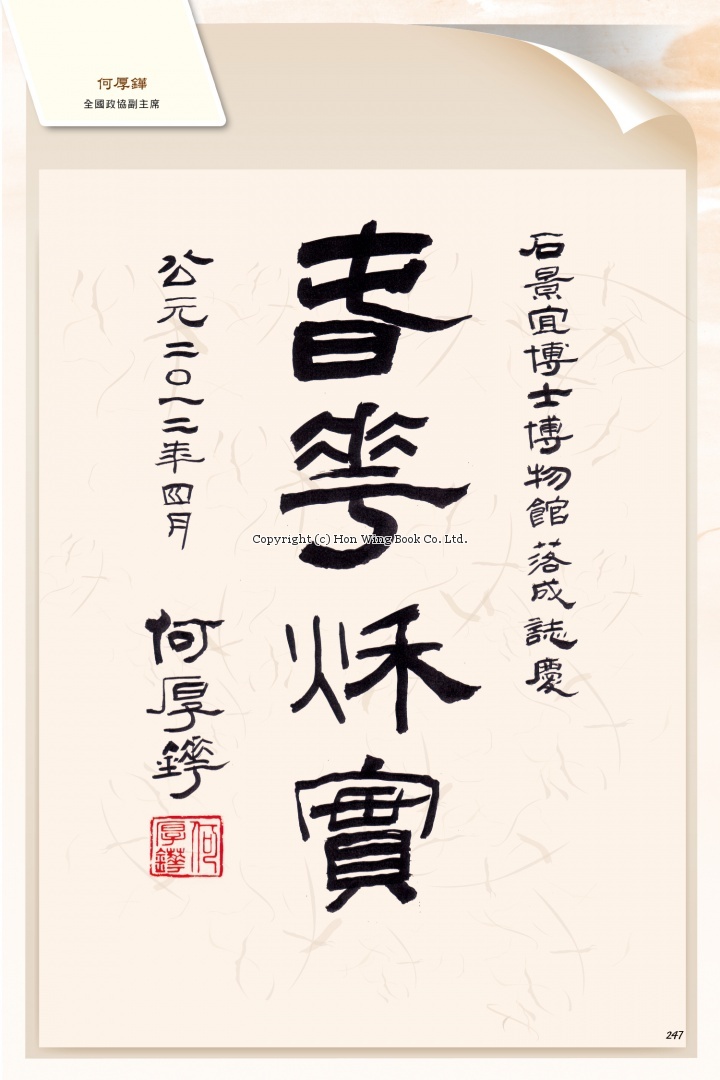 何厚鏵
全國政協副主席
石景宜博士博物館落成誌慶
春華秋實
公元二〇一二年四月
何厚鏵
何厚鏵
Copyright (c) Hon Wing Book Co. Ltd.
247